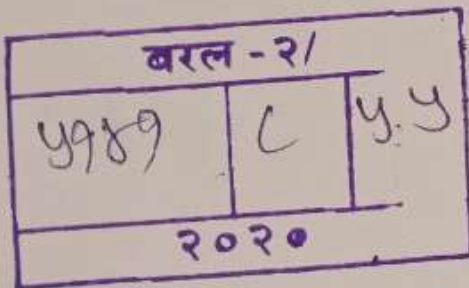 बरल - २/
५१४१ ८ ५.५
२०२०